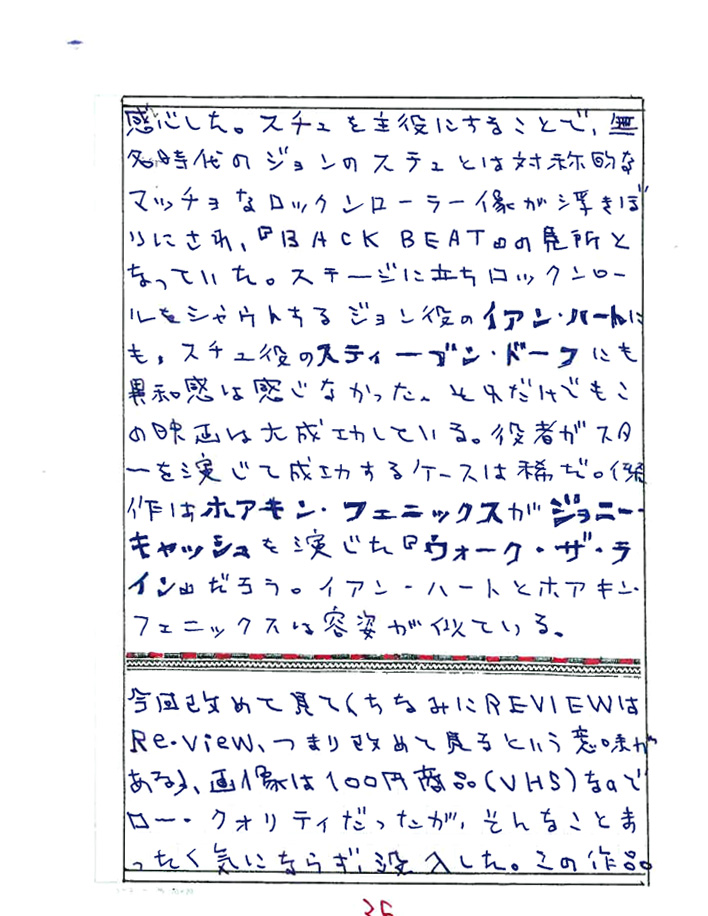 感心した。スチュを主役にすることで、無
名時代のジョンのスチュとは対称的な
マッチョなロックンローラー像が浮きぼ
りにされ、『BACK BEAT』の見所と
なっていた。ステージに立ちロックンロー
ルをシャウトするジョン役のイアン・ハートに
も、スチュ役のスティーブン・ドーフにも
異和感は感じなかった。それだけでもこ
の映画は大成功している。役者がスタ
ーを演じて成功するケースは稀だ。傑
作はホアキン・フェニックスがジョニー・
キャッシュを演じた『ウォーク・ザ・ラ
イン』だろう。イアン・ハートとホアキン・
フェニックスは容姿が似ている。
今回改めて見て(ちなみにREVIEWは
Re・view、つまり改めて見るという意味が
ある)、画像は100円商品(VHS)なので
ロー・クォリティだったが、そんなことま
ったく気にならず、没入した。この作品
36